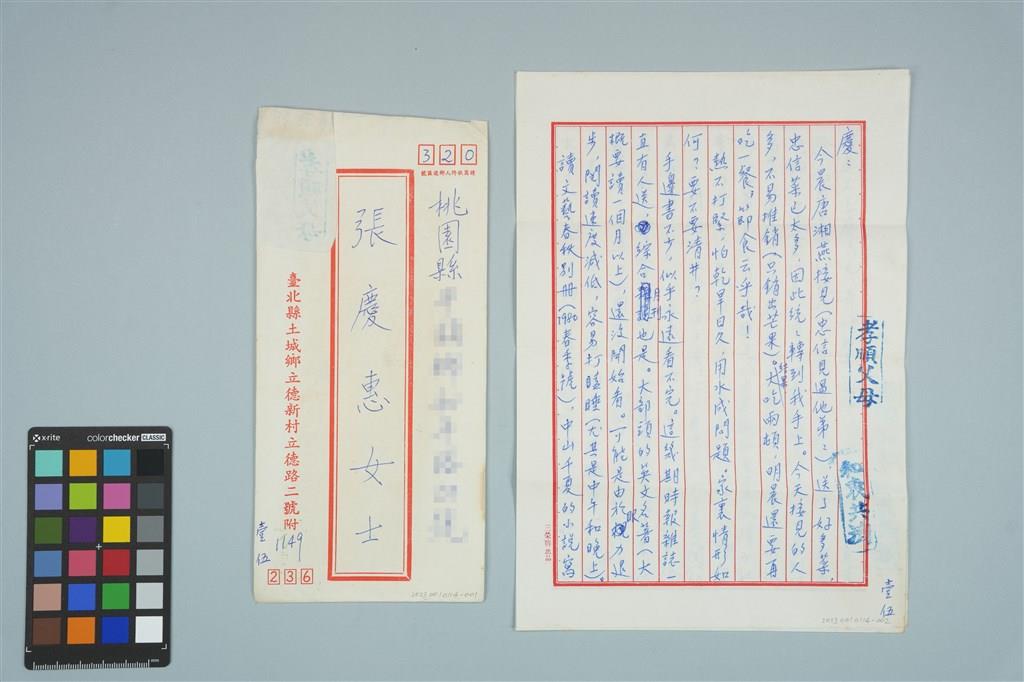 320
請寫收件人郵遞區號
桃園縣
張慶惠女士
臺北縣土城鄉立德新村立德路二號附
1149
壹伍
236
孝順父母
2023.001.0114-001
x-rite
colorchecker CLASSIC
慶：
今晨唐湘燕接見（忠信見過他弟弟），送了好多菜，
忠信菜已太多，因此統統轉到我手上。今天接見的人
多，不易推銷（只銷出芒果）。結果大吃兩頓，明晨還要再
吃一餐，節食云乎哉！
熱不打緊，怕乾旱日久，用水成問題。家裏情形如
何？要不要清井？
手邊書不少，似乎永遠看不完。這幾期時報雜誌一
直有人送，綜合月刊也是。大部頭的英文名著（大
概要讀一個月以上），還沒開始看。可能是由於眼力退
步，閱讀速度減低，容易打瞌睡（尤其是中午和晚上）。
讀文藝春秋別冊（1980春季號），中山千夏的小說寫
孝順父母
壹伍
2023.001.0114-002